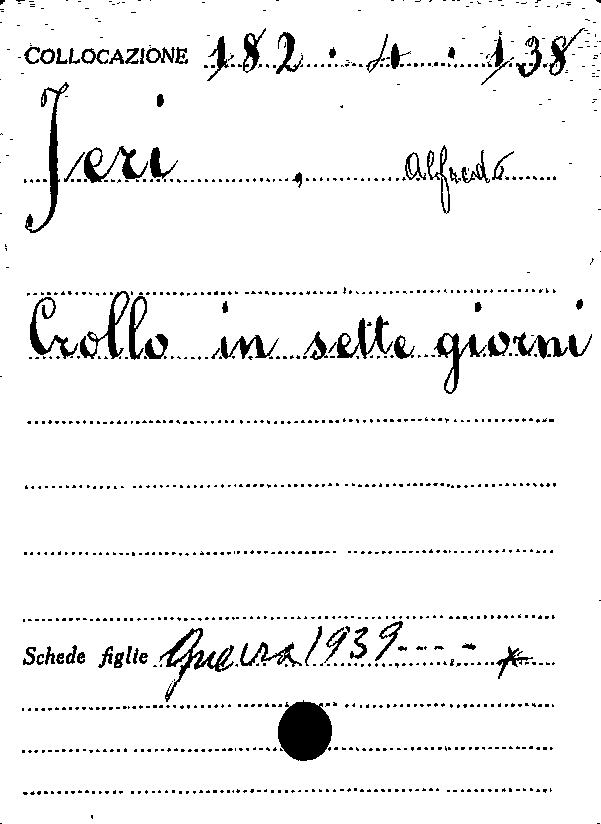 COLLOCAZIONE 182.4.138
Jeri, Alfredo
Crollo in sette giorni
Schede figlie Guerra 1939----*